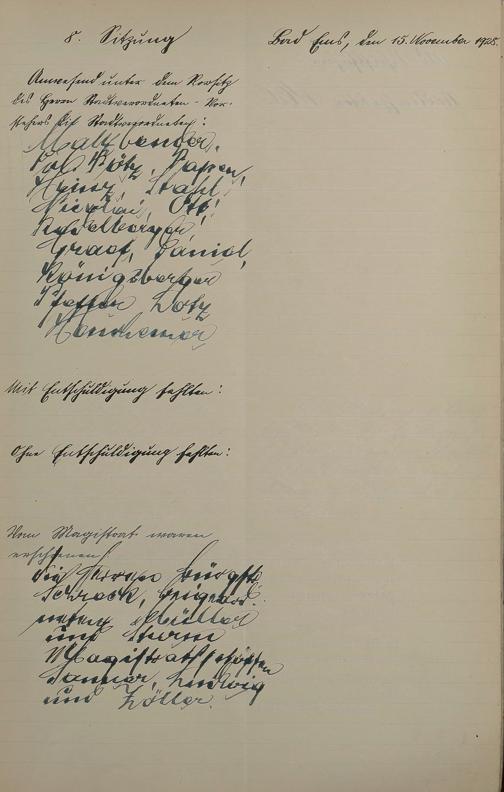 8. Sitzung
Bad Ems, den 15. November 1928.
Anwesend unter dem Vorsitz
des Herrn Stadtverordneten-Vor-
stehers die Stadtverordneten:
Balzer,
Papen,
Heinz, Stahl,
Nicolai, Ott,
Graef, Daniel,
Königsberger
Pfeffer Lotz
Mit Entschuldigung fehlten:
Ohne Entschuldigung fehlten:
Vom Magistrat waren
erschienen:
die Herren Bürgstr.
Schreck, Beigeord.
neten Müller
und Sturm
Magistratsschöffen
Sanner, Ludwig
und Zöller.